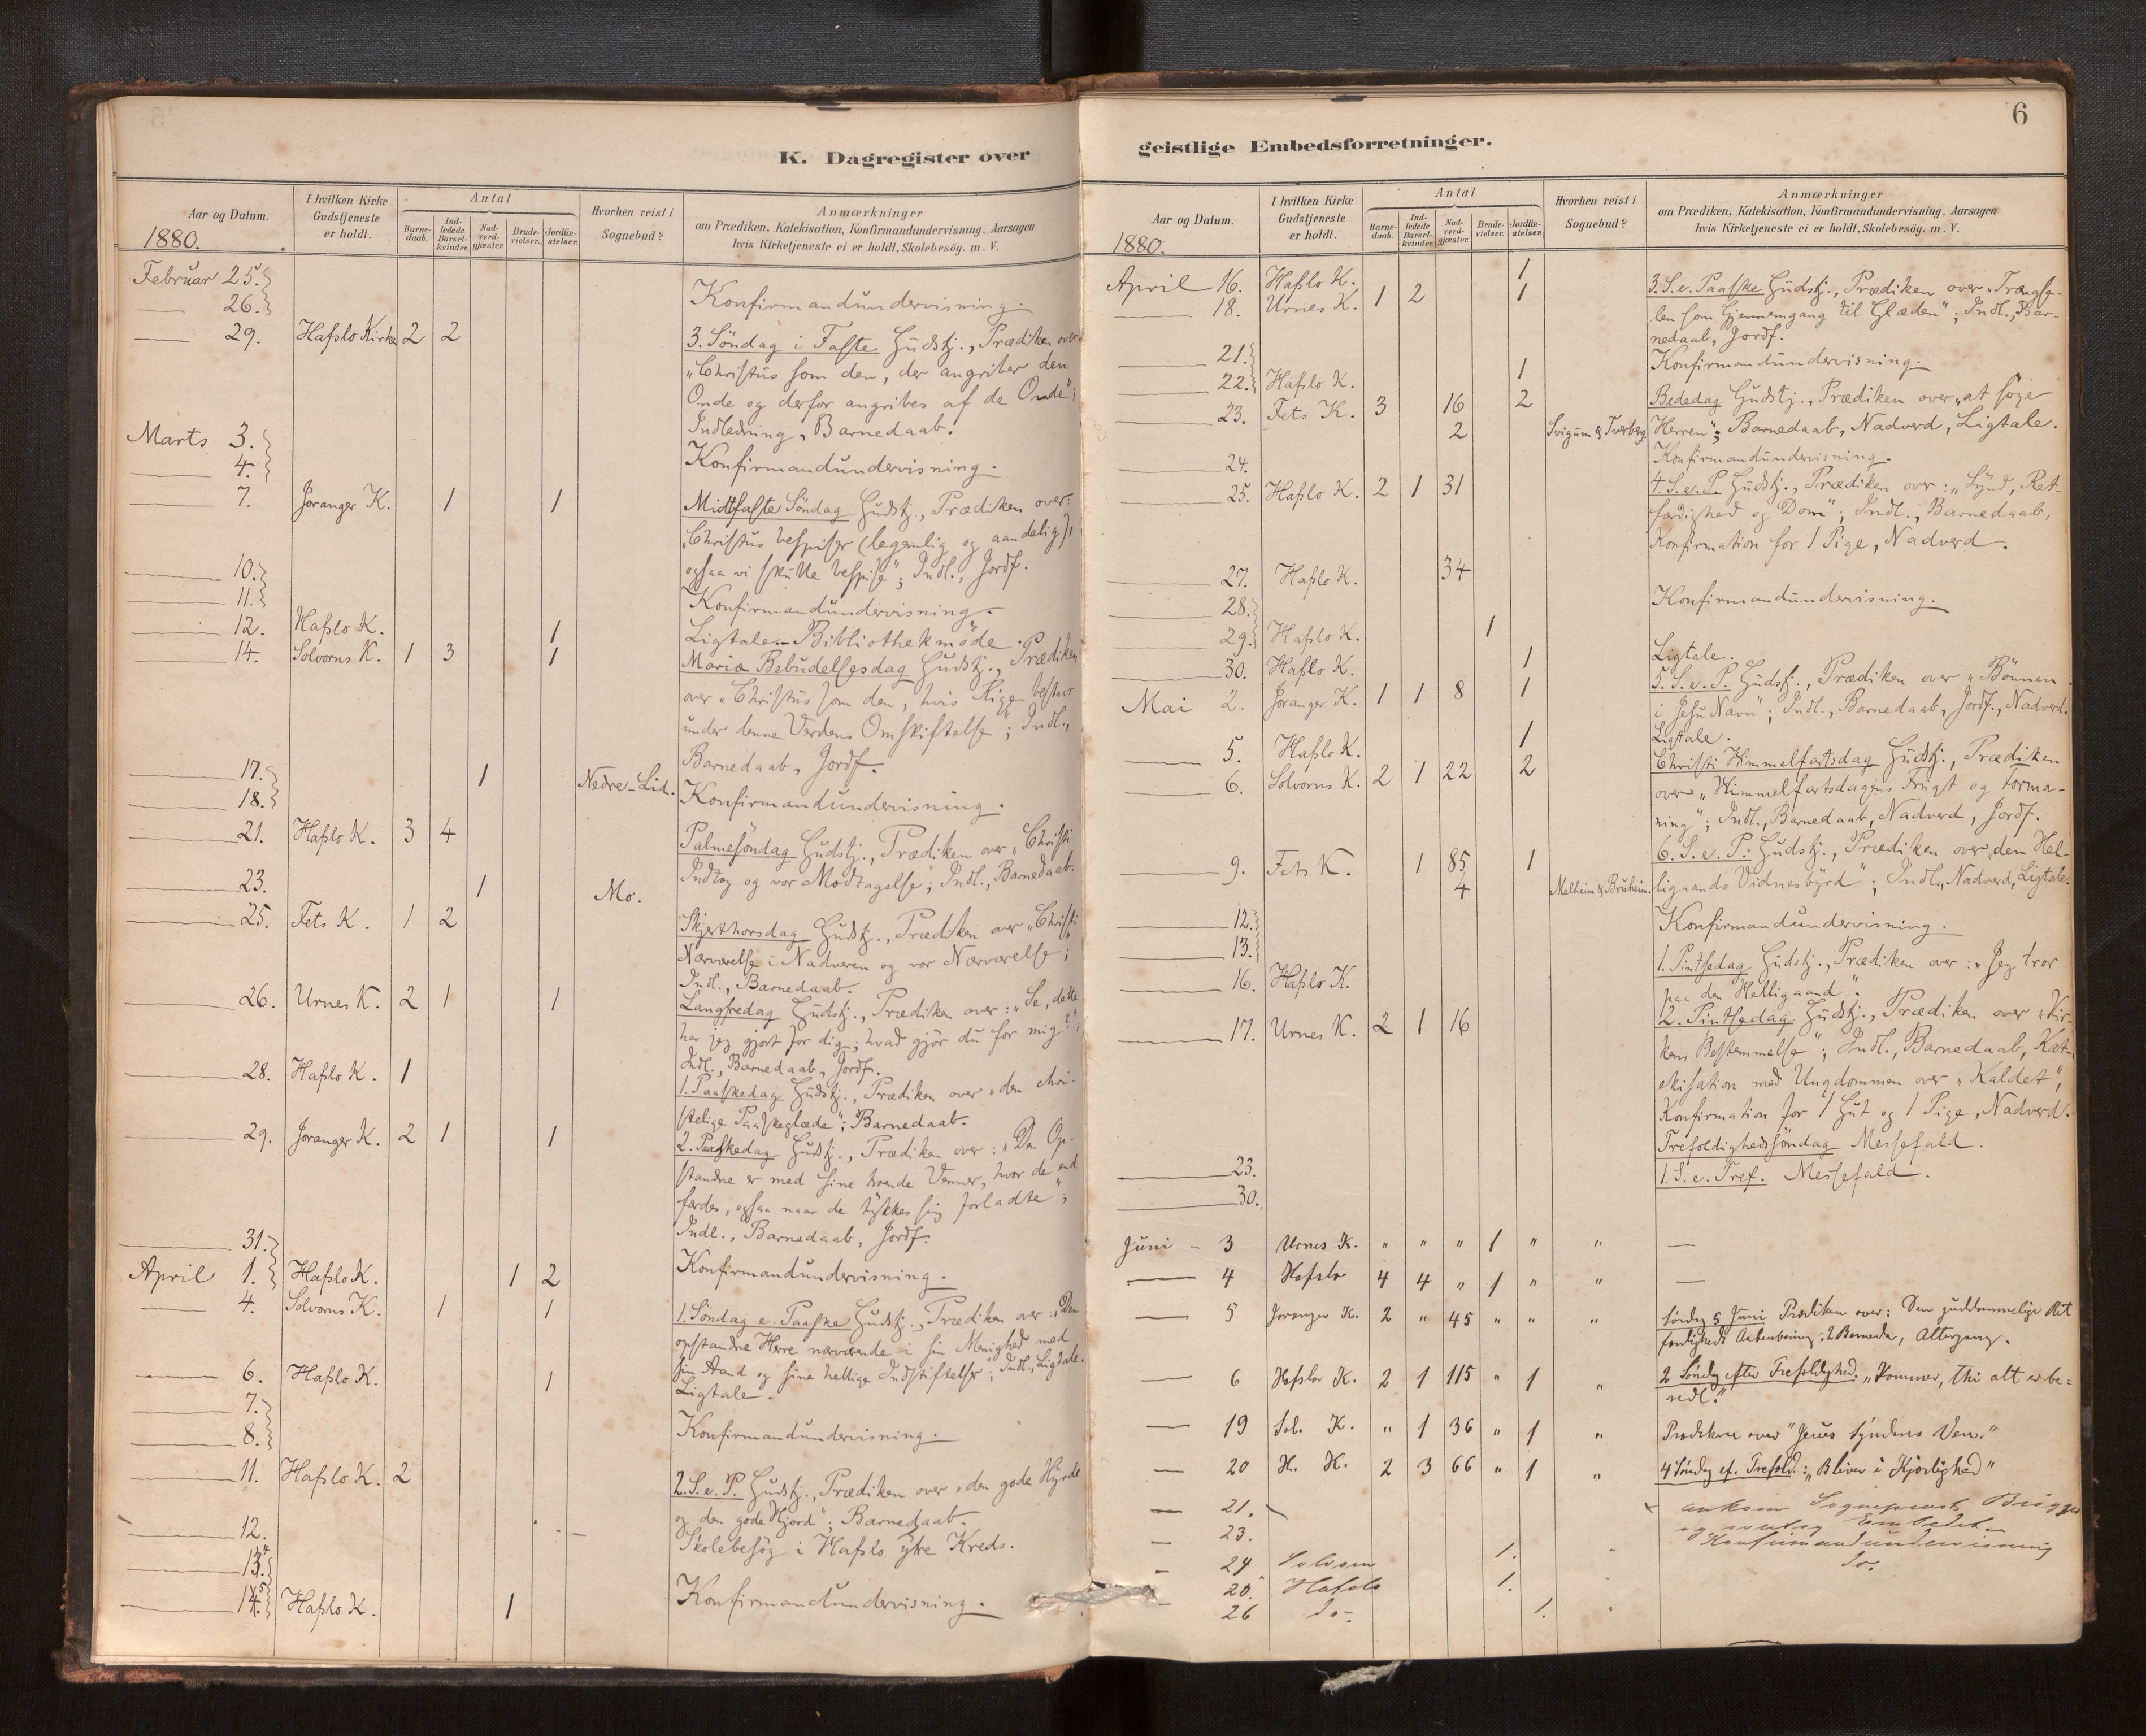 6
K. Dagregister over
geistlige Embedsforretninger.
Aar og Datum.
1880.
I hvilken Kirke
Gudstjeneste
er holdt.
Antal
Barne-
daab.
Ind-
ledede
Barsel-
kvinder.
Nad-
verd-
gjæster.
Brude-
vielser.
Jordfæ-
stelser.
Hvorhen reist i
Sognebud?
Anmærkninger
om Prædiken, Katekisation, Konfirmandundervisning, Aarsagen
hvis Kirketjeneste ei er holdt, Skolebesög. m. V.
Februar 25.
26. Konfirmandundervisning.
29. Hafslo Kirke 2 2 3. Söndag i Faste Gudstj., Prædiken over
"Christus som den, der angriber den
Onde og derfor angribes af de Onde";
Indledning, Barnedaab.
Marts 3.
4. Konfirmandundervisning.
7. Joranger K. 1 1 Midtfaste Söndag Gudstj., Prædiken over:
"Christus bespiser (legemlig og aandelig),
ogsaa vi skulle bespise"; Indl., Jordf.
10.
11. Konfirmandundervisning.
12. Hafslo K. 1 Ligtale. Bibliothekmöde.
14. Solvorns K. 1 3 1 Mariæ Bebudelsesdag Gudstj., Prædiken
over "Christus som den, hvis Rige bestaar
under denne Verdens Omskiftelse"; Indl.,
Barnedaab, Jordf.
17. 1 Nedre-Lid.
18. Konfirmandundervisning.
21. Hafslo K. 3 4 Palmesöndag Gudstj., Prædiken over "Christi
Indtog og vor Modtagelse"; Indl., Barnedaab.
23. 1 Mo.
25. Fets K. 1 2 Skjærthorsdag Gudstj., Prædiken over "Christi
Nærværelse i Nadveren og vor Nærværelse";
Indl., Barnedaab.
26. Urnes K. 2 1 1 Langfredag Gudstj., Prædiken over: "Se, dette
har jeg gjort for dig; hvad gjör du for mig?";
Indl., Barnedaab, Jordf.
28. Hafslo K. 1 1. Paaskedag Gudstj., Prædiken over "den chri-
stelige Paaskeglæde"; Barnedaab.
29. Joranger K. 2 1 1 2. Paaskedag Gudstj., Prædiken over: "Den Op-
standne er med sine troende Venner, hvor de end
færdes, ogsaa naar de tykkes sig forladte";
Indl., Barnedaab, Jordf.
31.
April 1. Hafslo K. 1 2 Konfirmandundervisning.
4. Solvorns K. 1 1 1. Söndag e. Paaske Gudstj., Prædiken over: "Den
opstandne Herre nærværende i sin Menighed med
sin Aand og sine hellige Indstiftelser"; Indl., Ligtale.
6. Hafslo K. 1 Ligtale.
7.
8. Konfirmandundervisning.
11. Hafslo K. 2 2. S. e. P. Gudstj., Prædiken over "den gode Hyrde
og den gode Hjord"; Barnedaab.
12. Skolebesög i Hafslo ytre Kreds.
14.
15. Hafslo K. 1 Konfirmandundervisning.
Aar og Datum.
1880.
I hvilken Kirke
Gudstjeneste
er holdt.
Antal
Barne-
daab.
Ind-
ledede
Barsel-
kvinder.
Nad-
verd-
gjæster.
Brude-
vielser.
Jordfæ-
stelser.
Hvorhen reist i
Sognebud?
Anmærkninger
om Prædiken, Katekisation, Konfirmandundervisning, Aarsagen
hvis Kirketjeneste ei er holdt, Skolebesög. m. V.
April 16. Hafslo K. 1
18. Urnes K. 1 2 1 3. S. e. Paaske Gudstj., Prædiken over "Trængse-
len som Gjennemgang til Glæden"; Indl., Bar-
nedaab, Jordf.
21.
22. Hafslo K. 1 Konfirmandundervisning.
23. Fets K. 3 16 2 Bededag Gudstj., Prædiken over "at söge
2 Svigum & Tverberg. Herren"; Barnedaab, Nadverd, Ligtale.
24. Konfirmandundervisning.
25. Hafslo K. 2 1 31 4. S. e. P. Gudstj., Prædiken over: "Synd, Ret-
færdighed og Dom"; Indl., Barnedaab,
Konfirmation for 1 Pige, Nadverd.
27. Hafslo K. 34
28. Konfirmandundervisning.
29. Hafslo K. 1
30. Hafslo K. 1 Ligtale.
Mai 2. Joranger K. 1 1 8 1 5. S. e. P. Gudstj., Prædiken over "Bönnen
i Jesu Navn"; Indl., Barnedaab, Jordf., Nadverd.
5. Hafslo K. 1 Ligtale.
6. Solvorns K. 2 1 22 2 Christi Himmelfartsdag Gudstj., Prædiken
over "Himmelfartsdagens Frugt og Forma-
ning"; Indl., Barnedaab, Nadverd, Jordf.
9. Fets K. 1 85 1 6. S. e. P. Gudstj., Prædiken over "den Hel-
4 Melheim & Bruheim. ligaands Vidnesbyrd"; Indl., Nadverd, Ligtale.
12.
13. Konfirmandundervisning.
16. Hafslo K. 1. Pintsedag Gudstj., Prædiken over: "Jeg tror
paa den Helligaand".
17. Urnes K. 2 1 16 2. Pintsedag Gudstj., Prædiken over "Kir-
kens Bestemmelse"; Indl., Barnedaab, Kat-
ekisation med Ungdommen over "Kaldet",
Konfirmation for 1 Gut og 1 Pige, Nadverd.
23. Trefoldighedsöndag Messefald.
30. 1. S. e. Tref. Messefald.
Juni - 3 Urnes K. " " " 1 " " —
4 Hafslo 4 4 " 1 " " —
5 Joranger K. 2 " 45 " " " Söndag 5 Juni Prædiken over: Den guddommelige Ret
færdigheds Aabenbaring. 2 Barnedaab, Altergang.
6 Hafslo K. 2 1 115 " 1 " 2 Söndag efter Trefoldighed. "Kommer, thi alt er be=
redt."
19 Sol. K. " 1 36 " 1 " Prædiken over "Jesus Syndens Ven."
20 H. K. 2 3 66 " 1 " 4 Söndag ef. Trefold.: "Bliver i Kjærlighed"
21. ankom Sognepræst
og overtog Embedet.
23. Konfirmandundervisning
24 Solvorn 1. Do.
25. Hafslo 1.
26 Do. 1.